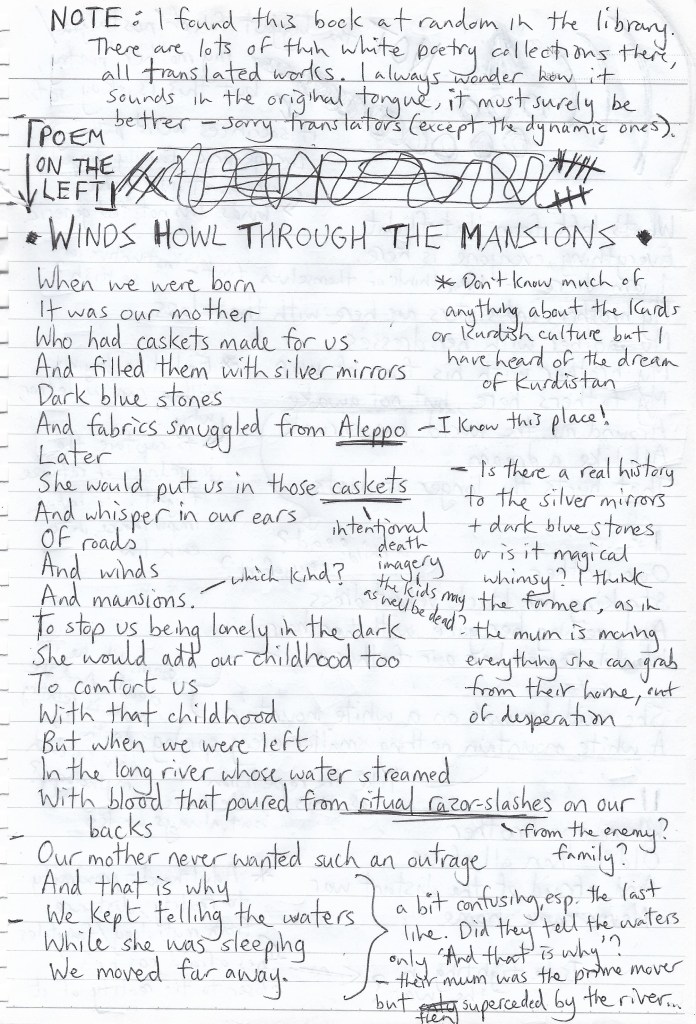 NOTE: I found this book at random in the library.
There are lots of thin white poetry collections there,
all translated works. I always wonder how it
sounds in the original tongue, it must surely be
better – sorry translators (except the dynamic ones).
POEM
ON THE
LEFT
• WINDS HOWL THROUGH THE MANSIONS •
When we were born
It was our mother
Who had caskets made for us
And filled them with silver mirrors
Dark blue stones
And fabrics smuggled from Aleppo
Later
She would put us in those caskets
And whisper in our ears
Of roads
And winds
And mansions.
To stop us being lonely in the dark
She would add our childhood too
To comfort us
With that childhood
But when we were left
In the long river whose water streamed
With blood that poured from ritual razor-slashes on our
backs
Our mother never wanted such an outrage
And that is why
We kept telling the waters
While she was sleeping
We moved far away.
* Don't know much of
anything about the Kurds
or Kurdish culture but I
have heard of the dream
of Kurdistan
– I know this place!
– Is there a real history
to the silver mirrors
+ dark blue stones
or is it magical
whimsy? I think
the former, as in
the mum is moving
everything she can grab
from their home, out
of desperation
intentional
death
imagery
the kids may
as well be dead?
which kind?
from the enemy?
family?
a bit confusing, esp. the last
line. Did they tell the waters
only 'And that is why'?
– their mum was the prime mover
but superceded by the river...